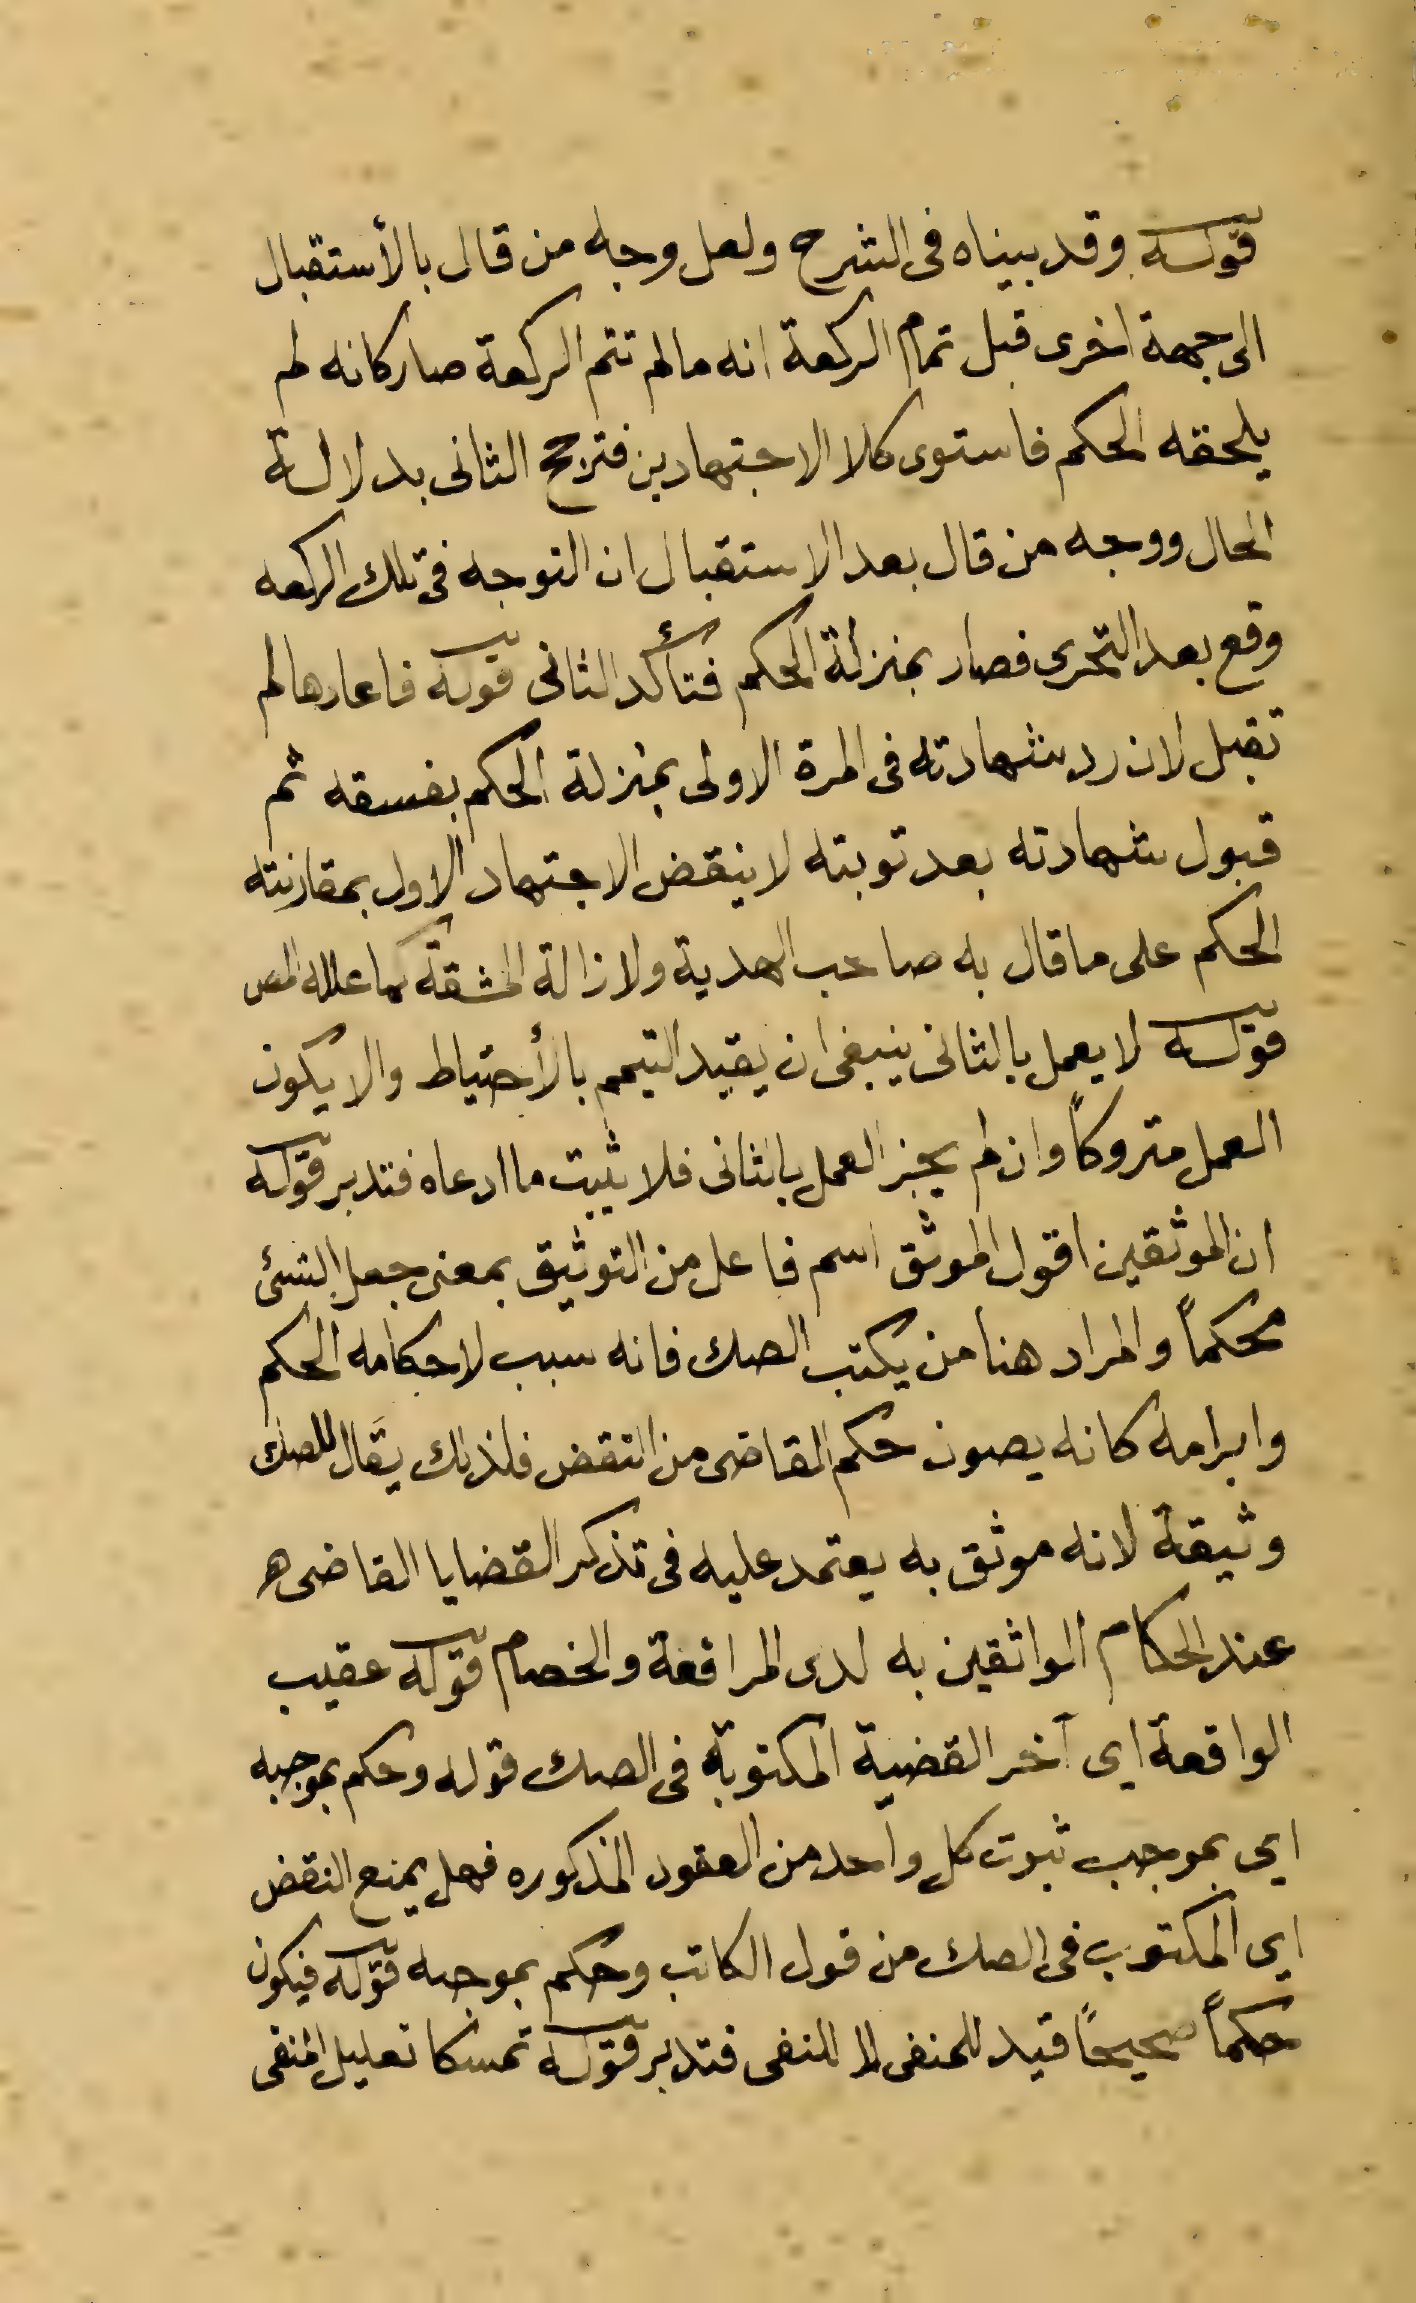 قوله وقد بيناه فى الشرح ولعل وجه من قال بالأستقبال
الى جهة اخرى قبل تمام الركعة انه مالم تتم الركعة صار كانه لم
يلحقه الحكم فاستوى كلا الاجتهادين فترجح الثانى بدلالة
الحال ووجه من قال بعد الاستقبال ان التوجه فى تلك الركعه
وقع بعد التحرى فصار بمنزلة الحكم فتأكد الثانى قوله فاعادها لم
تقبل لان رد شهادته فى المرة الاولى بمنزلة الحكم بفسقه ثم
قبول شهادته بعد توبته لا ينقض الاجتهاد الاول بمقارنته
الحكم على ما قال به صاحب الهدية ولازالة المشقة كما علله المص
قوله لا يعمل بالثانى ينبغى ان يقيد التيمم بالأحتياط والا يكون
العمل متروكاً وان لم يجز العمل بالثانى فلا يثبت ما ادعاه فتدبر قوله
ان الموثقين اقول الموثق اسم فاعل من التوثيق بمعنى جعل الشئ
محكماً والمراد هنا من يكتب الصك فانه سبب لاحكامه الحكم
وابرامه كانه يصون حكم القاضى من النقض فلذلك يقال للصك
وثيقة لانه موثق به يعتمد عليه فى تذكر القضايا القاضى هـ
عند الحكام الواثقين به لدى المرافعة والخصام قوله عقيب
الواقعة اى آخر القضية المكتوبة فى الصك قوله وحكم بموجبه
اى بموجب ثبوت كل واحد من العقود المذكوره فهل يمنع النقض
اى المكتوب فى الصك من قول الكاتب وحكم بموجبه قوله فيكون
حكماً صحيحاً قيد للمنفى لا للنفى فتدبر قوله تمسكا تعليل المنفى